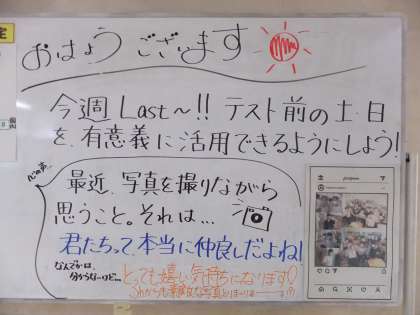 おはようございます
今週Last～!! テスト前の土・日
を有意義に活用できるようにしよう!
心の声…
最近、写真を撮りながら
思うこと。それは…
君たちって、本当に仲良しだよね!
なんでかは、
分からな～けど…
とっても嬉しい気持ちになります♡